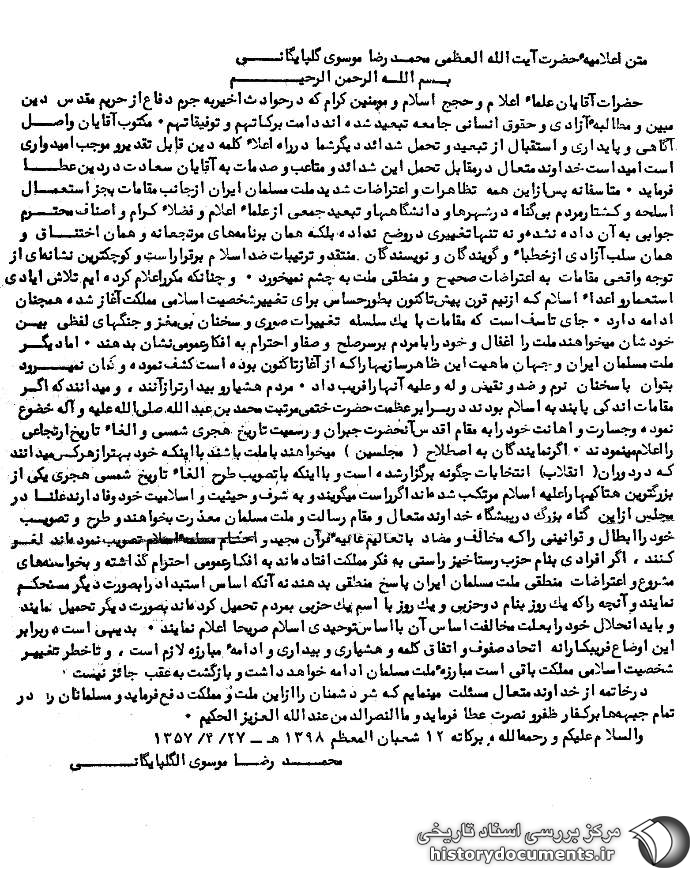 متن اعلامیه حضرت آیت الله العظمی محمد رضا موسوی گلپایگانی
بسم الله الرحمن الرحیم
حضرات آقایان علماء اعلام و حجج اسلام و مومنین کرام که در حوادث اخیر به جرم دفاع از حریم مقدس دین
مبین و مطالبه آزادی و حقوق انسانی جامعه تبعید شده اند دامت برکاتهم و توفیقاتهم ۰ مکتوب آقایان واصل
آگاهی و پایداری و استقبال از تبعید و تحمل شدائد دیگر شما در راه اعلاء کلمه دین قابل تقدیر و موجب امیدواری
است امید است خداوند متعال در مقابل تحمل این شدائد و متاعب و صدمات به آقایان سعادت دردین عطا
فرماید ۰ متاسفانه پس از این همه تظاهرات و اعتراضات شدید ملت مسلمان ایران از جانب مقامات بجز استعمال
اسلحه و کشتار مردم بی گناه در شهرها و دانشگاهها و تبعید جمعی از علماء اعلام و فضلاء کرام و اصناف محترم
جوابی به آن داده نشده و نه تنها تغییری در وضع نداده بلکه همان برنامه های مرتجعانه و همان اختناق و
همان سلب آزادی از خطباء و گویندگان و نویسندگان منتقد و ترتیبات ضد اسلام برقرار است و کوچکترین نشانه ای از
توجه واقعی مقامات به اعتراضات صحیح و منطقی ملت به چشم نمیخورد ۰ و چنانکه مکرر اعلام کرده ایم تلاش ایادی
استعمار و اعداء اسلام که از نیم قرن پیش تاکنون بطور حساس برای تغییر شخصیت اسلامی مملکت آغاز شده همچنان
ادامه دارد ۰ جای تاسف است که مقامات با یك سلسله تغییرات صوری و سخنان بی مغز و جنگهای لفظی بین
خودشان میخواهند ملت را اغفال و خود را با مردم بر سر صلح و صفا و احترام به افکار عمومی نشان بدهند ۰ اما دیگر
ملت مسلمان ایران و جهان ماهیت این ظاهر سازیها را که از آغاز تاکنون بوده است کشف نموده و گمان نمیرود
بتوان با سخنان نرم و ضد و نقیض و له و علیه آنها را فریب داد ۰ مردم هشیار و بیدارتر از آنند ، و میدانند که اگر
مقامات اندکی پابند به اسلام بودند در برابر عظمت حضرت ختمی مرتبت محمد بن عبد الله صلی الله علیه و آله خضوع
نموده و جسارت و اهانت خود را به مقام اقدس آنحضرت جبران و رسمیت تاریخ هجری شمسی و الغاء تاریخ ارتجاعی
را اعلام مینمودند ۰ اگر نمایندگان به اصطلاح ( مجلسین ) میخواهند با ملت باشند با اینکه خود بهتر از هر کس میدانند
که در دوران ( انقلاب ) انتخابات چگونه برگزار شده است و با اینکه با تصویب طرح الغاء تاریخ شمسی هجری یکی از
بزرگترین هتاکیها را علیه اسلام مرتکب شده اند اگر راست میگویند و به شرف و حیثیت و اسلامیت خود وفادارند علنا در
مجلس از این گناه بزرگ در پیشگاه خداوند متعال و مقام رسالت و ملت مسلمان معذرت بخواهند و طرح و تصویب
خود را ابطال و قوانینی را که مخالف و مضاد با تعالیم عالیه قرآن مجید و احکام مسلمه اسلام تصویب نموده اند لغو
کنند ، اگر افرادی بنام حزب رستاخیز راستی به فکر مملکت افتاده اند به افکار عمومی احترام گذاشته و بخواسته های
مشروع و اعتراضات منطقی ملت مسلمان ایران پاسخ منطقی بدهند نه آنکه اساس استبداد را بصورت دیگر مستحکم
نمایند و آنچه را که یك روز بنام دو حزبی و یك روز با اسم یك حزبی بمردم تحمیل کرده اند بصورت دیگر تحمیل نمایند
و باید انحلال خود را بعلت مخالفت اساس آن با اساس توحیدی اسلام صریحا اعلام نمایند ۰ بدیهی است در برابر
این اوضاع فریبکارانه اتحاد صفوف و اتفاق کلمه و هشیاری و بیداری و ادامه مبارزه لازم است ، و تا خطر تغییر
شخصیت اسلامی مملکت باقی است مبارزه ملت مسلمان ادامه خواهد داشت و بازگشت به عقب جائز نیست
در خاتمه از خداوند متعال مسئلت مینمایم که شر دشمنان را از این ملت و مملکت دفع فرماید و مسلمانان را در
تمام جبهه ها بر کفار ظفر و نصرت عطا فرماید و ما النصر الا من عند الله العزیز الحکیم ۰
والسلام علیکم و رحمه الله و برکاته ۱۲ شعبان المعظم ۱۳۹۸ هـ ـ ۲۷/ ۴/ ۱۳۵۷
محمد رضا موسوی الگلپایگانی
مرکز بررسی اسناد تاریخی
historydocuments.ir